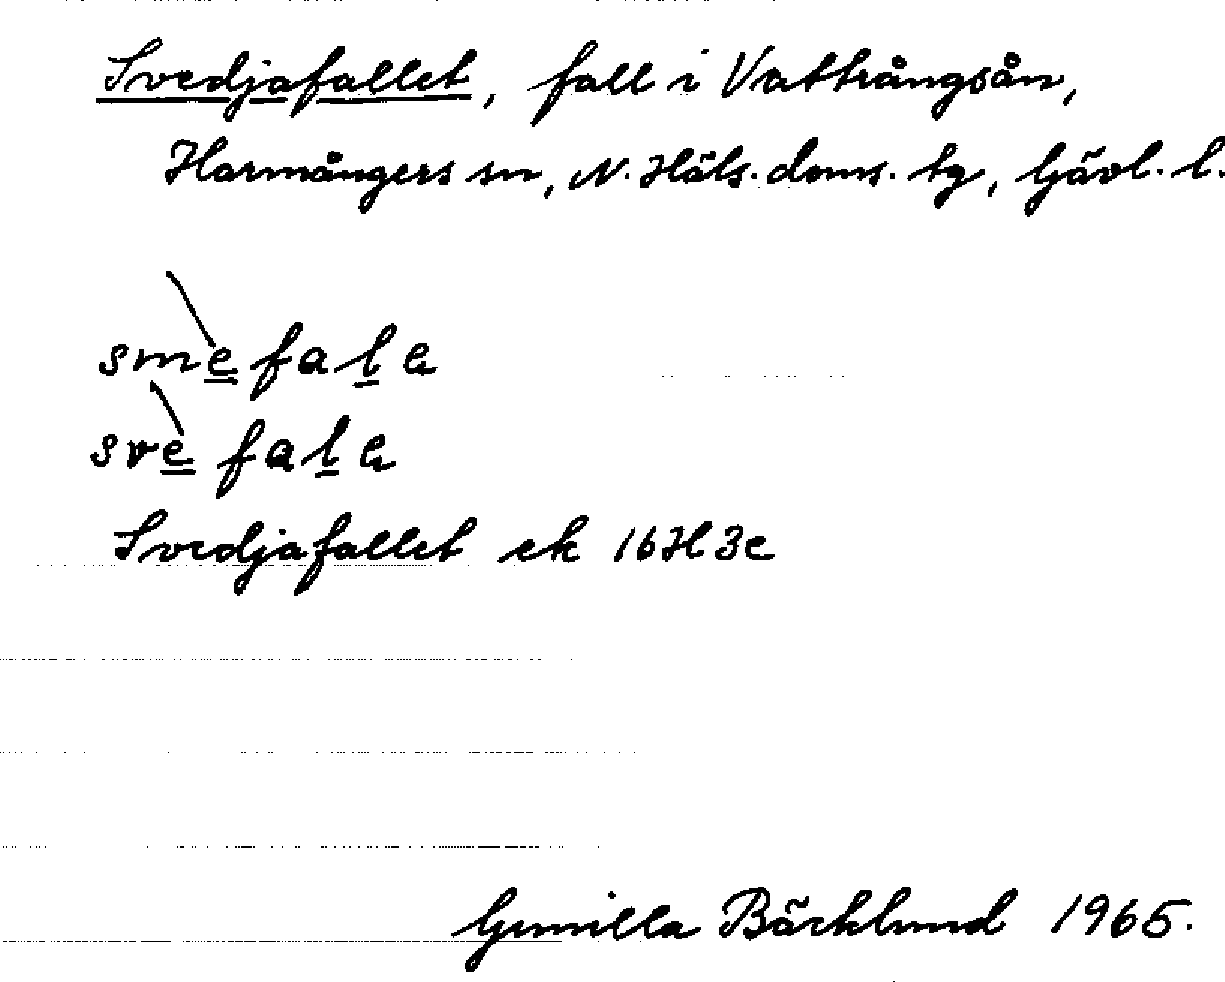 Svedjafallet, fall i Vattrångsån,
Harmångers sn, N. Häls. doms. tg, Gävl. l.
smefala
svefala
Svedjafallet ek 16H3e
Gunilla Bäcklund 1965.